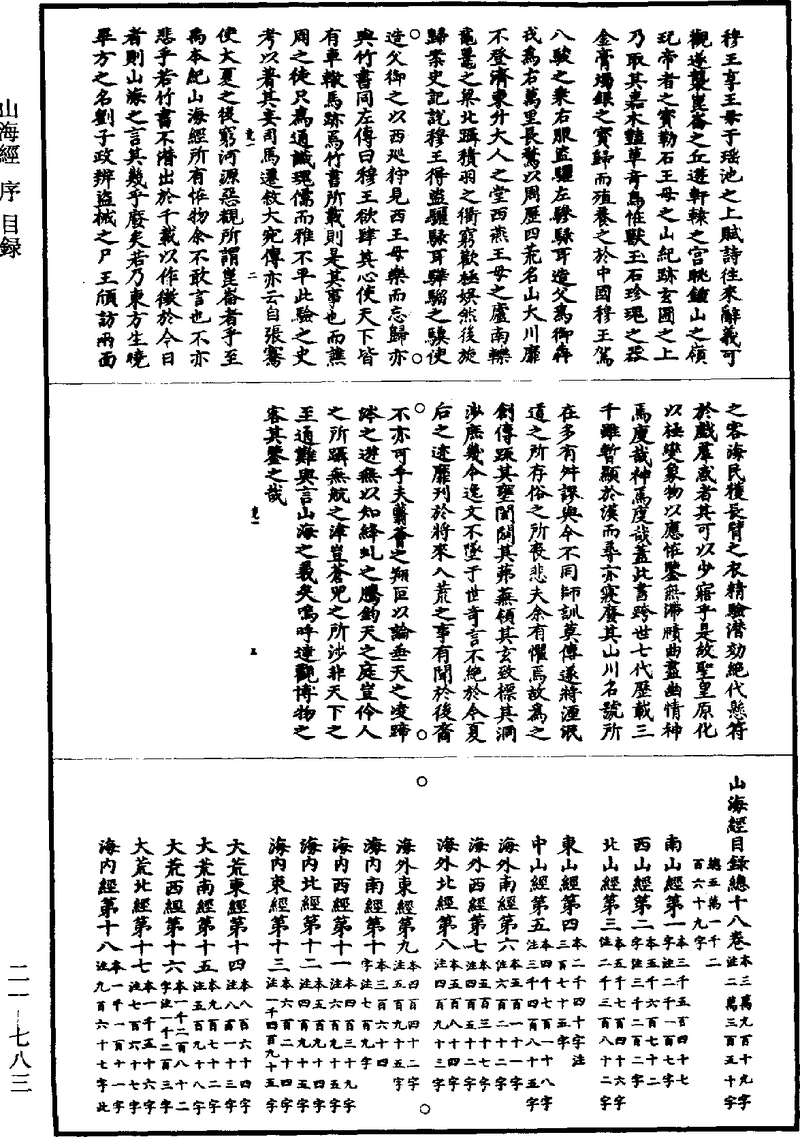 山海經 序 目録
穆王享王母于瑶池之上賦詩往來辭義可
觀遂襲崑崙之丘遊軒轅之宮眺鍾山之嶺
玩帝者之寶勒石王母之山紀跡玄圃之上
乃取其嘉木艶草奇鳥怪獸玉石珍瑰之器
金膏燭銀之寶歸而殖養之於中國穆王駕
八駿之乘右服盗驪左驂騄耳造父為御犇
戎為右萬里長騖以周歷四荒名山大川靡
不登濟東升大人之堂西燕王母之廬南轢
黿鼉之梁北躡積羽之衢窮歡極娱然後旋
歸案史記說穆王得盗驪騄耳驊騮之驥使
造父御之以西廵狩見西王母樂而忘歸亦
與竹書同左傳曰穆王欲肆其心使天下皆
有車轍馬跡焉竹書所載則是其事也而譙
周之徒足為通識瑰儒而雅不平此驗之史
考以著其妄司馬遷叙大宛傳亦云自張騫
使大夏之後窮河源惡覩所謂崑崙者乎至
禹本紀山海經所有怪物余不敢言也不亦
悲乎若竹書不潛出於千載以作徵於今日
者則山海之言其幾乎廢矣若乃東方生曉
畢方之名劉子政辨盗械之尸王頎訪兩面
之客海民獲長臂之衣精驗潛効絶代懸符
於戲羣惑者其可以少寤乎是故聖皇原化
以極變象物以應怪鑒無滯賾曲盡幽情神
焉廋哉神焉廋哉蓋此書跨世七代歷載三
千雖暫顯於漢而尋亦寢廢其山川名號所
在多有舛謬與今不同師訓莫傳遂將湮泯
道之所存俗之所喪悲夫余有懼焉故為之
創傳疏其壅閡闢其茀蕪領其玄致標其洞
涉庶幾令逸文不墜于世奇言不絶於今夏
后之迹靡刊於將來八荒之事有聞於後裔
不亦可乎夫翳薈之翔叵以論垂天之凌蹄
涔之遊無以知絳虬之騰鈞天之庭豈伶人
之所躡無航之津豈蒼兕之所涉非天下之
至通難與言山海之義矣嗚呼達觀博物之
客其鑒之哉
山海經目録總十八卷本三萬九百十九字注二萬三百五十字
總五萬一千二百六十九字
南山經第一本三千五百四十七字注二千一百七字
西山經第二本五千六百七十二字注三千二百二字
北山經第三本五千七百四十六字注二千三百八十二字
東山經第四本二千四十字注三百七十五字
中山經第五本四千七百一十八字注三千四百八十五字
海外南經第六本五百一十一字注六百二十二字
海外西經第七本五百三十七字注四百五十二字
海外北經第八本五百八十四字注四百九十三字
海外東經第九本四百四十二字注五百九十五字
海内南經第十本三百六十四字注七百九字
海内西經第十一本四百三十九字注六百九十五字
海内北經第十二本五百九十四字注四百九十五字
海内東經第十三本六百二十四字注一千四百九十五字
大荒東經第十四本八百六十四字注八百一十三字
大荒南經第十五本九百七十二字注五百九十八字
大荒西經第十六本一千二百八十二字注一千二百三字
大荒北經第十七本一千五十六字注七百六十七字
海内經第十八本一千一百十一字注九百六十七字此
二一－七八三